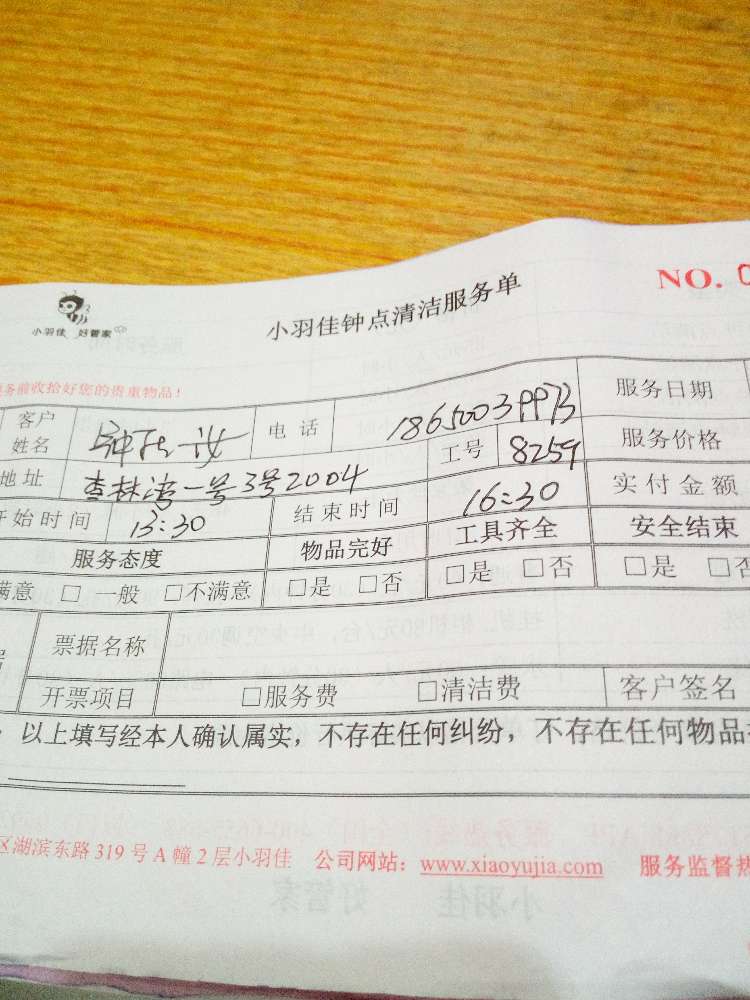 小羽佳 好管家
小羽佳钟点清洁服务单
NO.
务前收拾好您的贵重物品!
客户姓名 钟 女 电话 18650039973 服务日期
地址 杏林湾一号3号2004 工号 8259 服务价格
开始时间 13:30 结束时间 16:30 实付金额
服务态度 物品完好 工具齐全 安全结束
满意 □ 一般 □不满意 □是 □否 □是 □否 □是 □否
票据名称
开票项目 □服务费 □清洁费 客户签名
以上填写经本人确认属实，不存在任何纠纷，不存在任何物品
区湖滨东路 319 号 A 幢 2 层小羽佳 公司网站：www.xiaoyujia.com 服务监督热